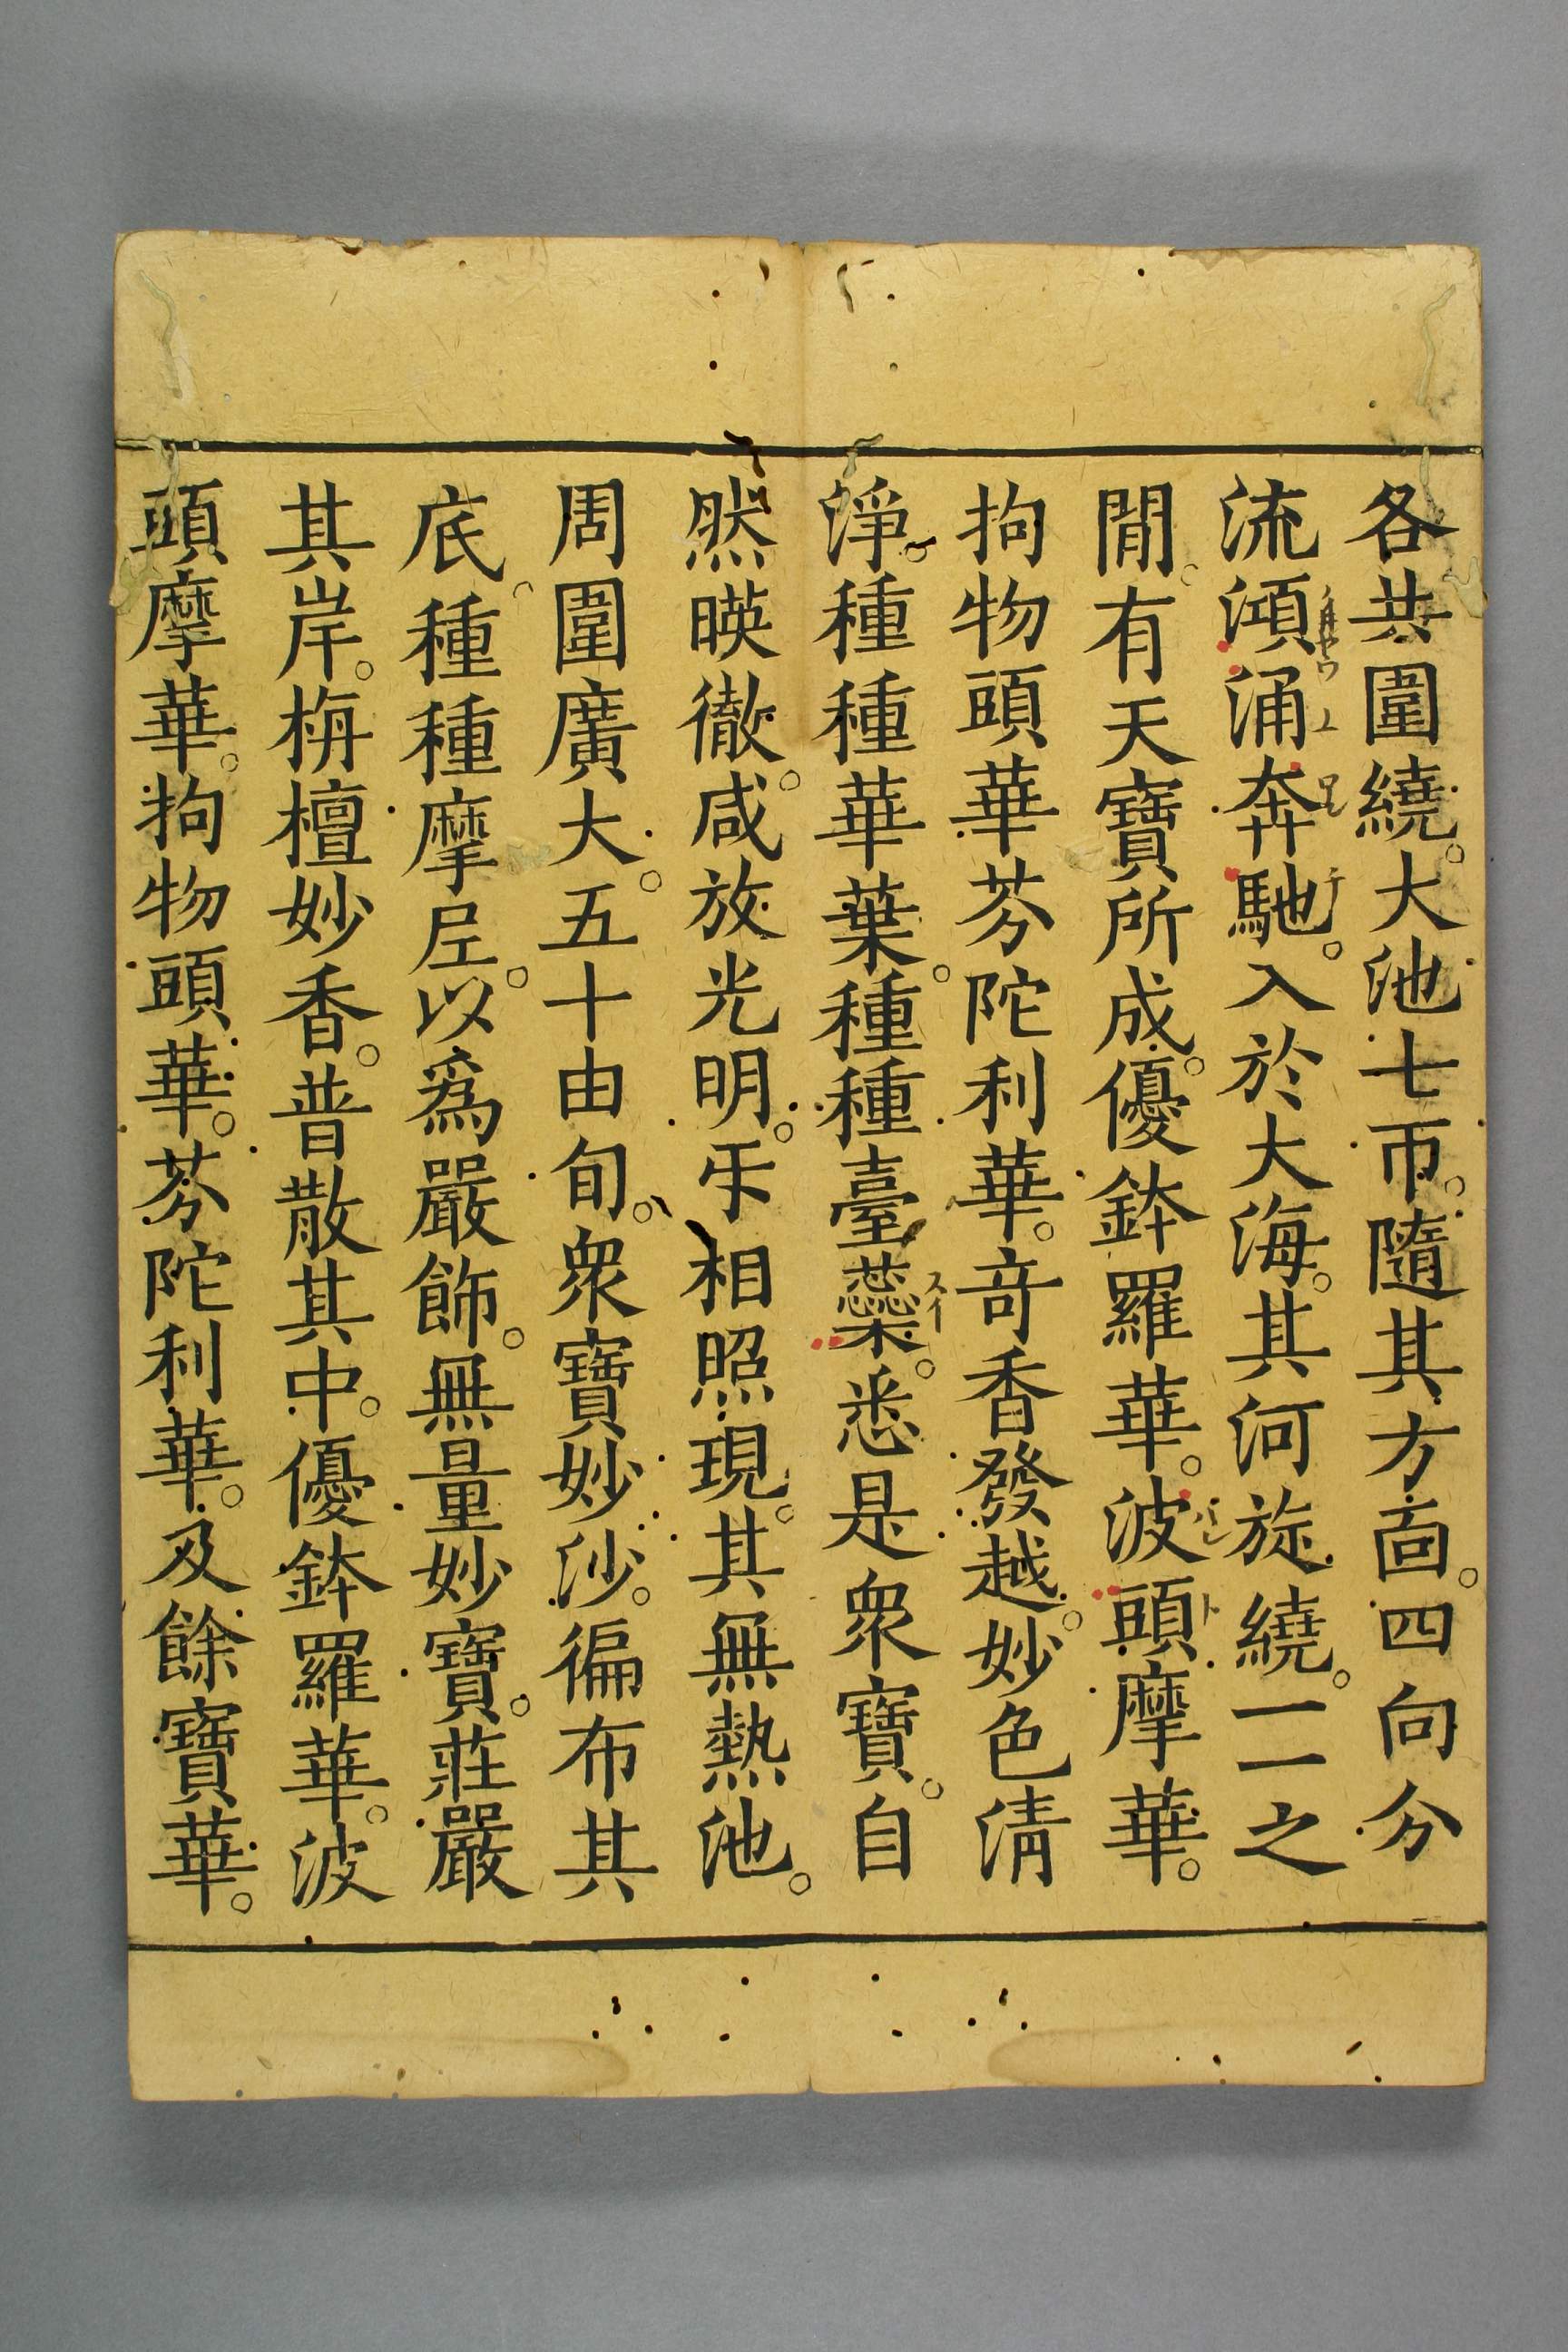 各共圍繞。大池七帀。隨其方面。四向分
流澒涌奔馳。入於大海。其河旋繞。一一之
閒。有天寶所成。優鉢羅華。波頭摩華。
拘物頭華芬陀利華。奇香發越。妙色清
淨。種種華葉。種種臺蘂。悉是衆寶。自
然暎徹。咸放光明。㸦相照現。其無熱池。
周圍廣大。五十由旬。衆寶妙沙。徧布其
底。種種摩尼。以爲嚴飾。無量妙寶。莊嚴
其岸。栴檀妙香。普散其中。優鉢羅華。波
頭摩華。拘物頭華。芬陀利華。及餘寶華。